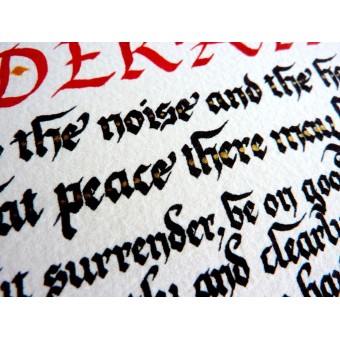 DERA
the noise and the
at peace there may
surrender, be on good
and clearly